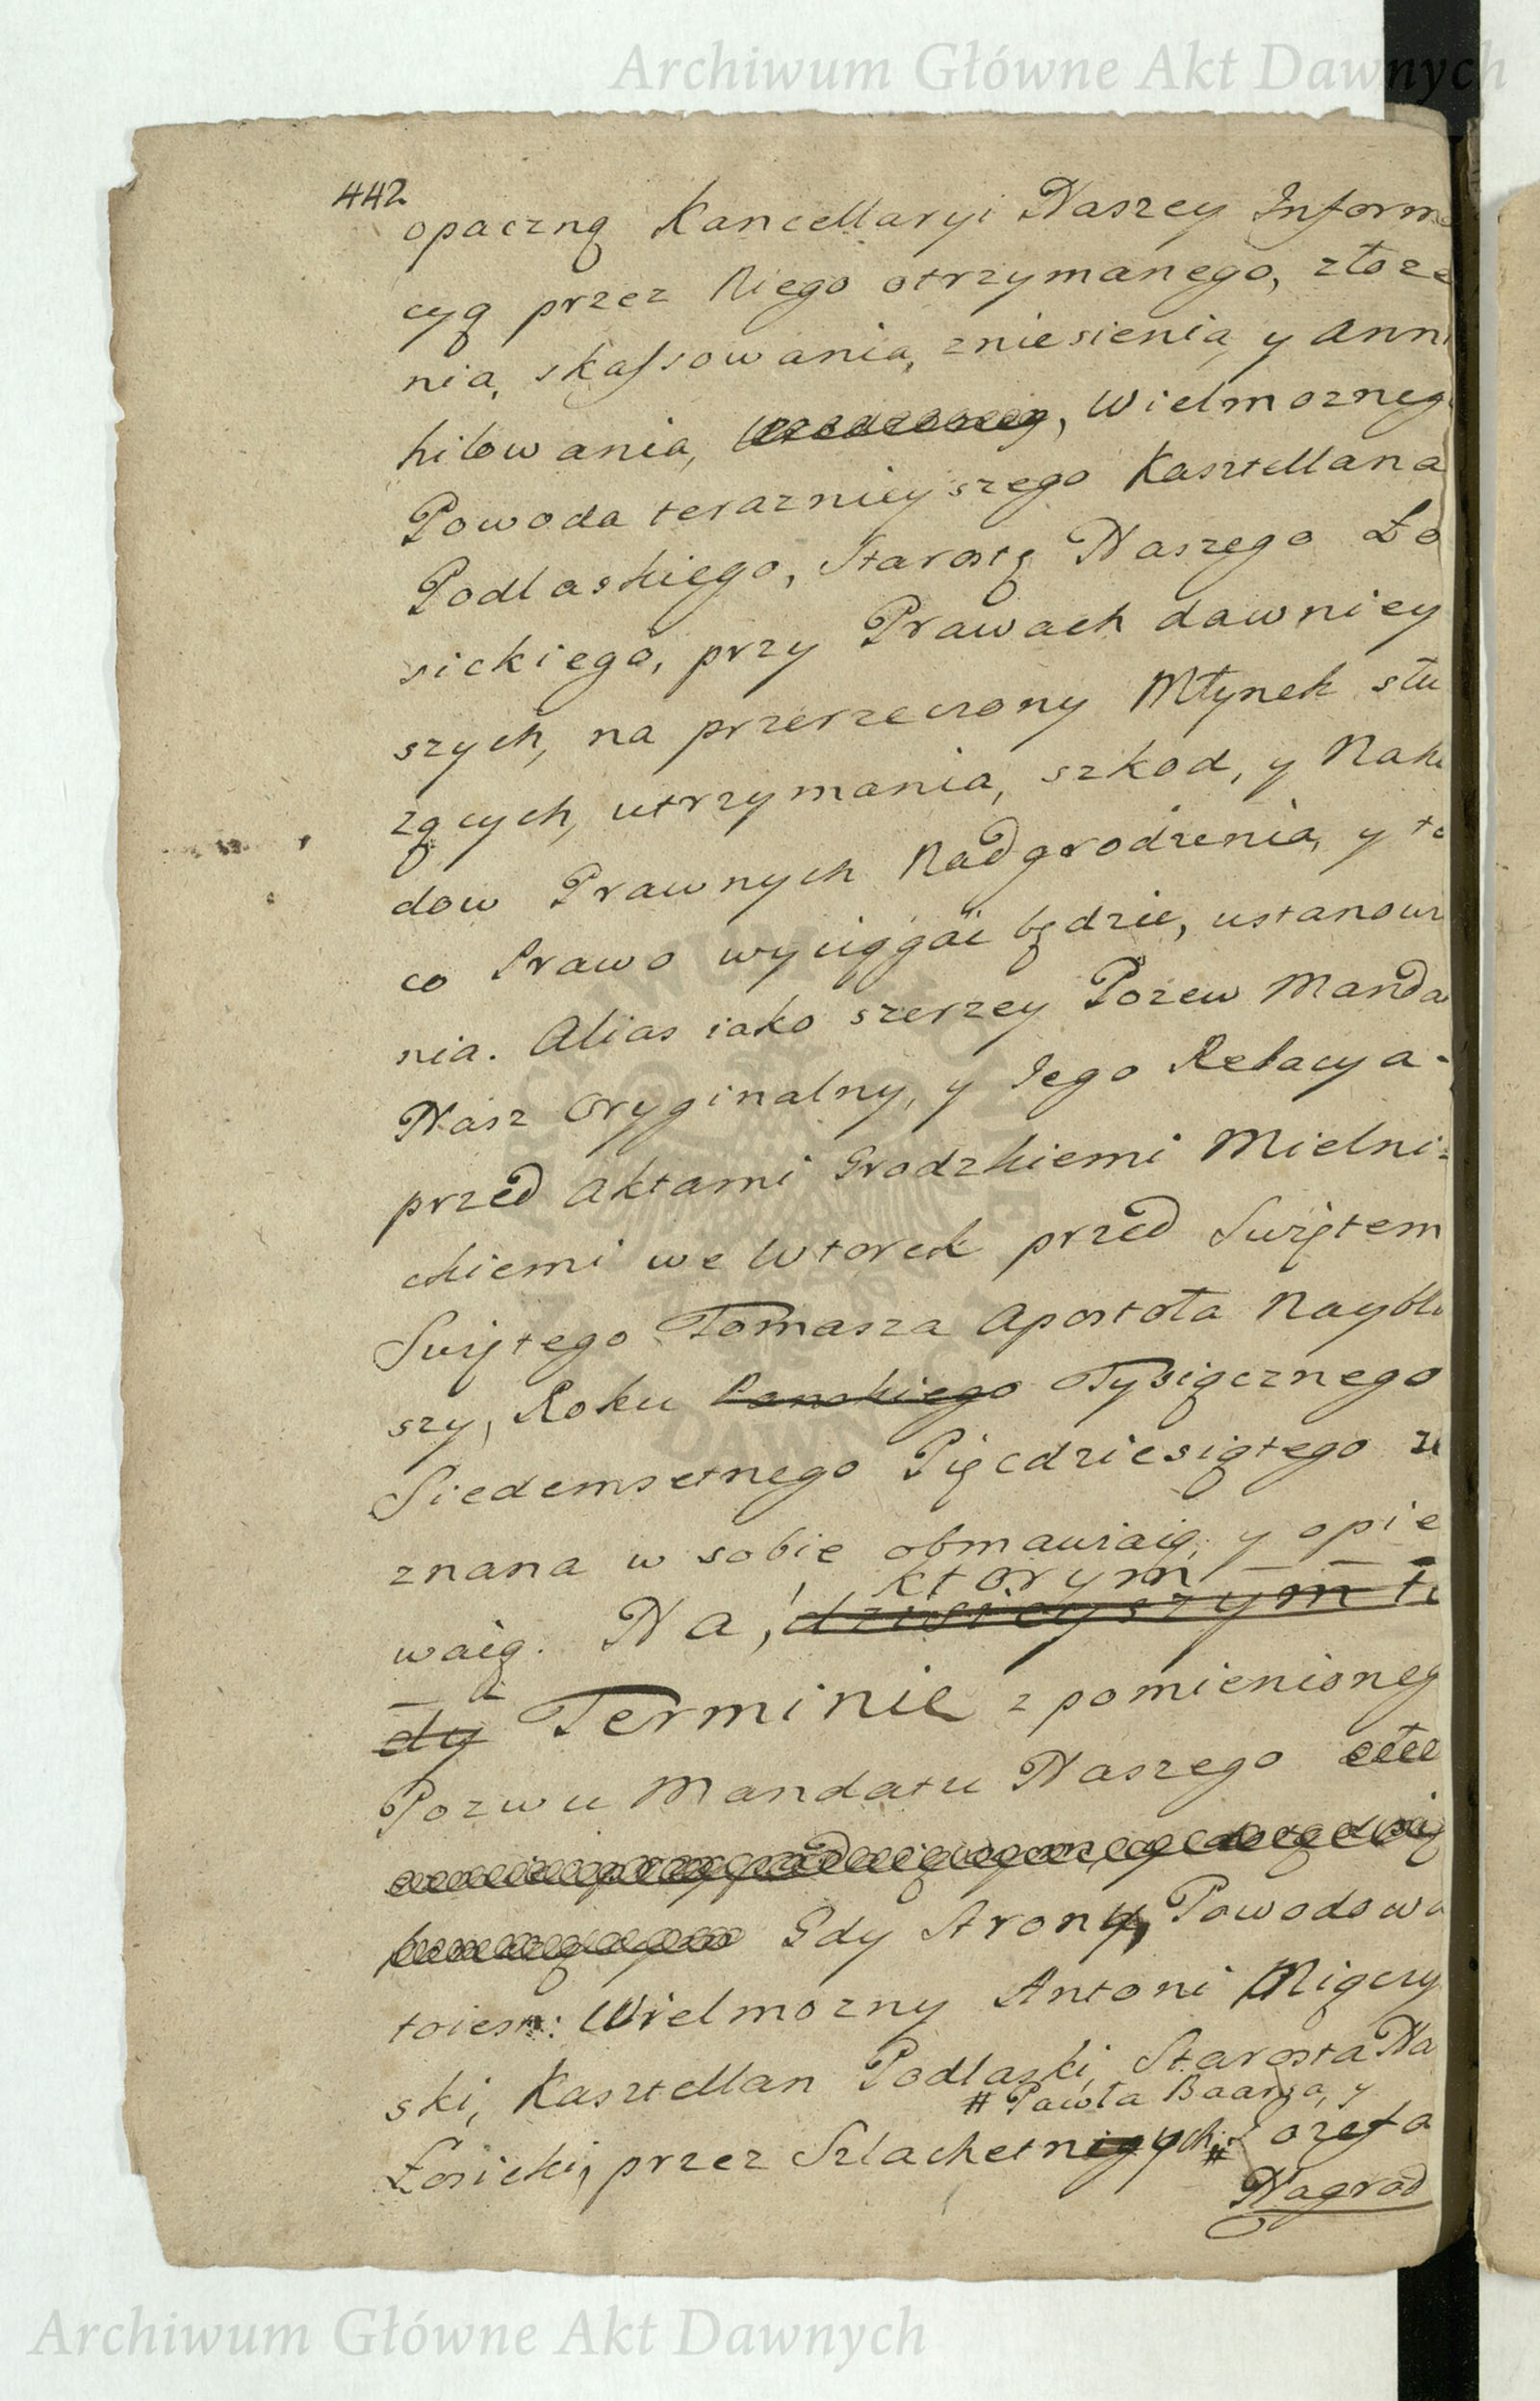 Archiwum Główne Akt Dawnych
442
opaczną Kancellaryi Naszey Inform
cyą przez Niego otrzymanego, złoże
nia, skassowania, zniesienia, y Anni
hilowania, Wielmożneg
Powoda teraznieyszego Kasztellana
Podlaskiego, Starostę Naszego Ło
sickiego, przy Prawach dawniey
szych, na przerzeczony Młynek słu
zących, utrzymania, szkod, y Nakł
dow Prawnych Nadgrodzenia, y to
co Prawo wyciągać będzie, ustanowi
nia. Alias iako szerzey Pozew Manda
Nasz Oryginalny, y Iego Relacya
przed Aktami Grodzkiemi Mielni:
ckiemi we Wtorek przed Swiętem
Swiętego Tomasza Apostoła Naybli
szy, Roku Panskiego Tysiącznego
Siedemsetnego Pięcdziesiątego ze
znana w sobie obmawiaią, y opie
ktorym
waią. Na, dzisieyszym te
dy Terminie z pomienioneg
Pozwu Mandatu Naszego
Gdy Strony, Powodowa
toiest: Wielmozny Antoni Miączy
ski, Kasztellan Podlaski, Starosta Na
# Pawła Baarsa, y
Łosicki, przez Szlachetnych # Iozefa
Nagrod
ARCHIWUM GŁÓWNE AKT DAWNYCH
Archiwum Główne Akt Dawnych